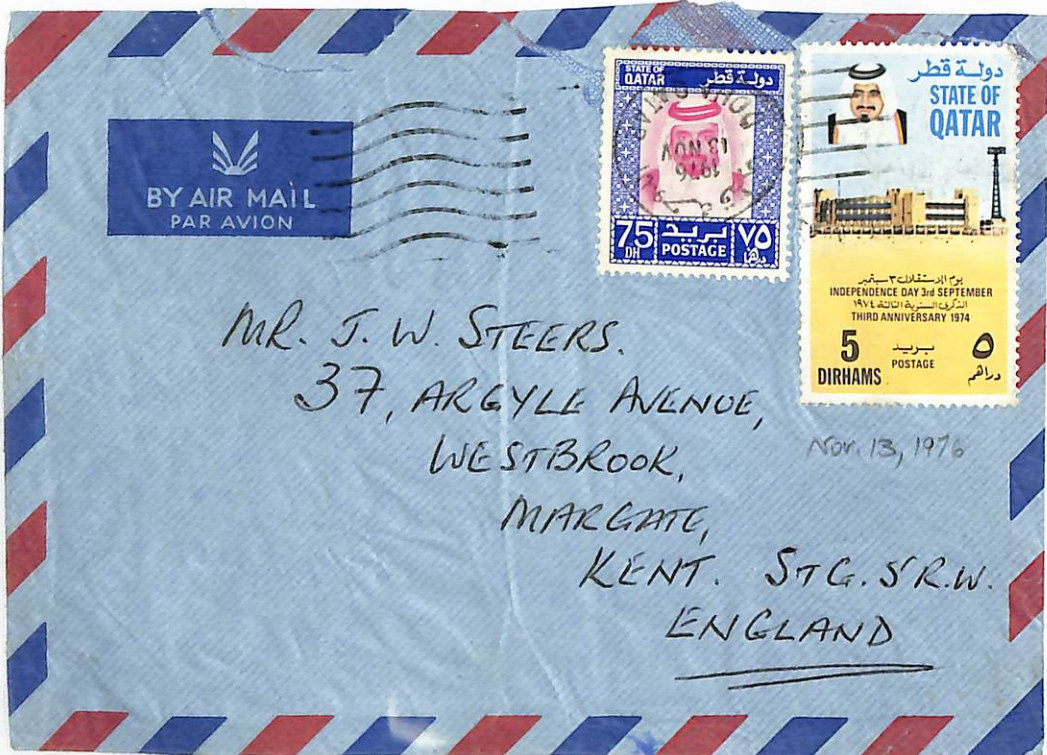 BY AIR MAIL
PAR AVION
STATE OF
QATAR
دولة قطر
13 NOV
1976
75
DH
بريد
POSTAGE
٧٥
درهما
دولة قطر
STATE OF
QATAR
يوم الاستقلال ٣ سبتمبر
INDEPENDENCE DAY 3rd SEPTEMBER
الذكرى السنوية الثالثة ١٩٧٤
THIRD ANNIVERSARY 1974
5
DIRHAMS
بريد
POSTAGE
٥
دراهم
MR. J. W. STEERS.
37, ARGYLE AVENUE,
WESTBROOK,
MARGATE,
KENT. STG. 5 R.W.
ENGLAND
Nov. 13, 1976